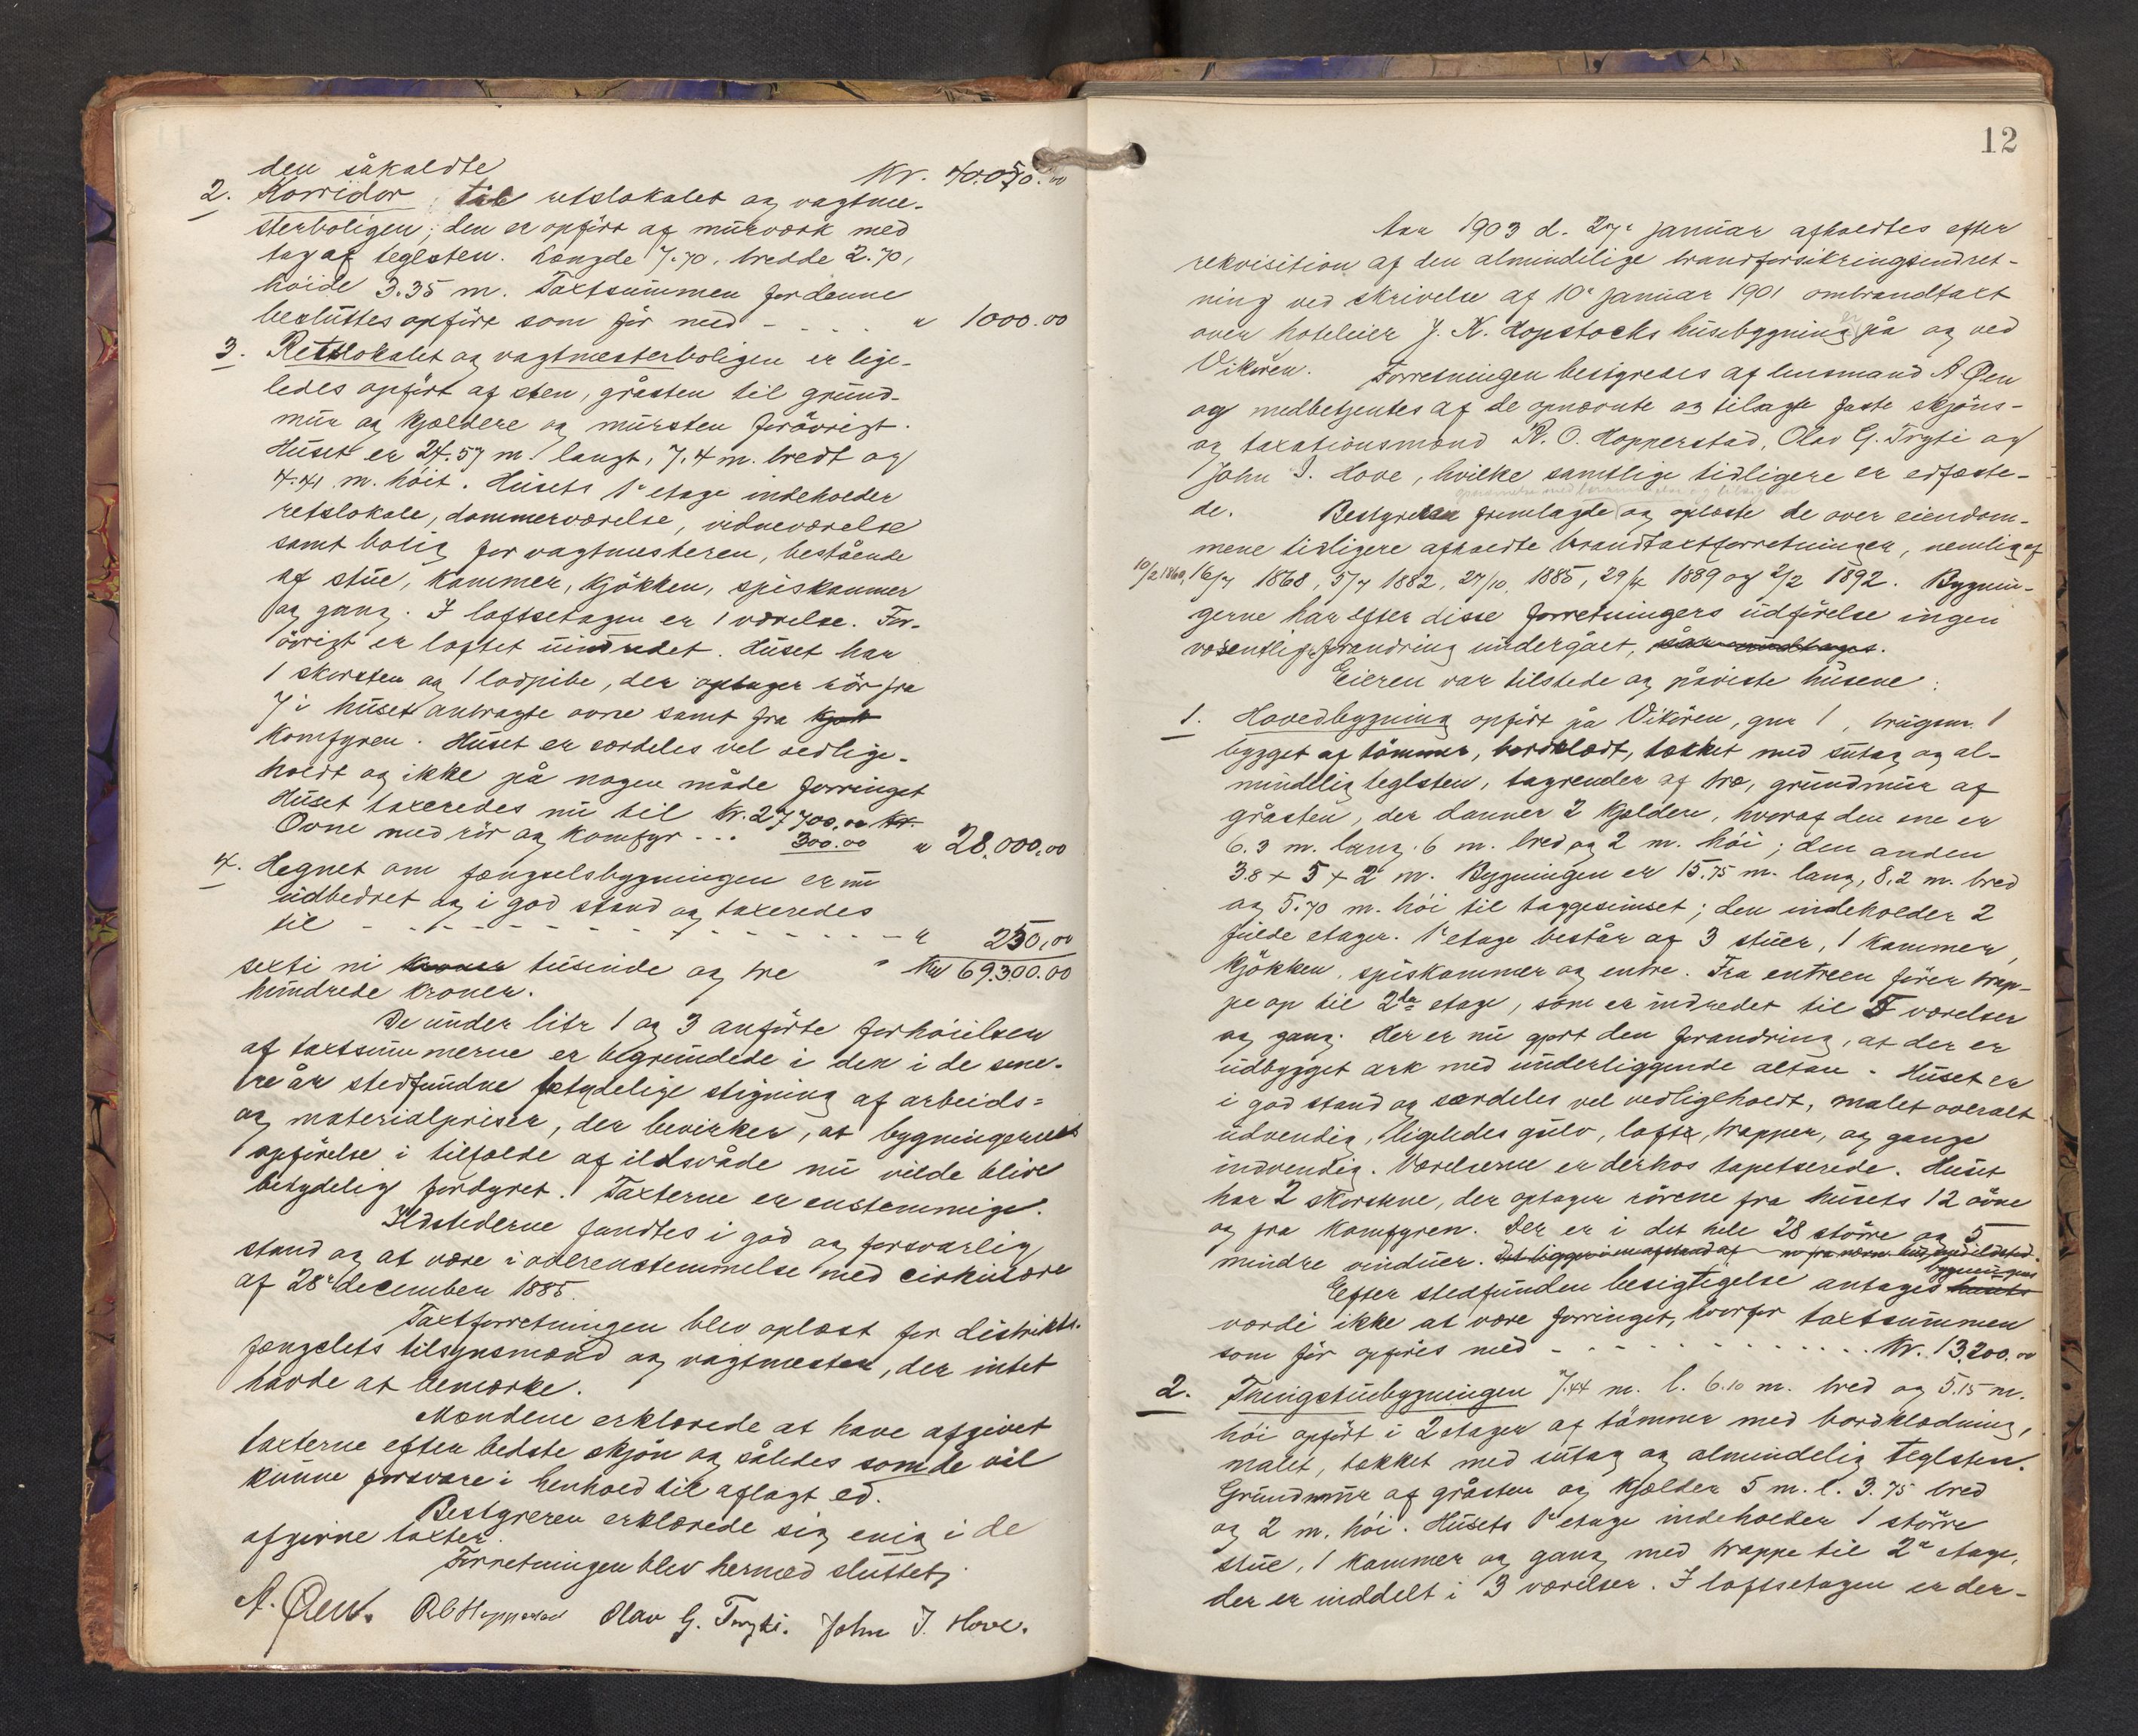 den såkaldte
Kr. 40.050.00
2. Korridor til retslokalet og vagtme-
sterboligen; den er opført af murværk med
tag af teglsten. Længde 7.70, bredde 2.70,
høide 3.35 m. Taxtsummen for denne
besluttes opført som før med - . . . . " 1000.00
3. Retslokalet og vagtmesterboligen er lige-
ledes opført af sten, gråsten til grund-
mur og kjældere og mursten forøvrigt.
Huset er 24.57 m. langt, 7.4 m. bredt og
4.41 m. høit. Husets 1e etage indeholder
retslokale, dommerværelse, vidneværelse
samt bolig for vagtmesteren, bestående
af stue, kammer, kjøkken, spiskammer
og gang. I loftsetagen er 1 værelse. For-
øvrigt er loftet uindredet. Huset har
1 skorsten og 1 lodpibe, der optager rør fra
7 i huset anbragte ovne samt fra kjøk
komfyren. Huset er særdeles vel vedlige-
holdt og ikke på nogen måde forringet
Huset taxeredes nu til Kr. 27700.00 kr.
Ovne med rør og komfyr - . . 300.00 " 28.000.00
4. Hegnet om fængselsbygningen er nu
udbedret og i god stand og taxeredes
til - - - - - - - - - - - - " 250,00
sexti ni kroner tusinde og tre " Kr 69.300.00
hundrede kroner.
De under litr 1 og 3 anførte forhøielsen
af taxtsummerne er begrundede i den i de sene-
re år stedfundne betydelige stigning af arbeids-
og materialpriser, der bevirker, at bygningernes
opførelse i tilfælde af ildsvåde nu vilde blive
betydelig fordyret. Taxterne er enstemmige.
Ildstederne fandtes i god og forsvarlig
stand og at være i overenstemmelse med cirkulære
af 28e december 1885.
Taxtforretningen blev oplæst for distrikts-
fængslets tilsynsmænd og vagtmester, der intet
havde at bemærke.
Mændene erklærede at have afgivet
taxterne efter bedste skjøn og således som de vil
kunne forsvare i henhold til aflagt ed.
Bestyreren erklærede sig enig i de
afgivne taxter.
Forretningen blev hermed sluttet.
A. Øen. R O Hopperstad Olav G. Tryti. John J. Hove.
12
Aar 1903 d. 27e januar afholdtes efter
rekvisition af den almindelige brandforsikringsindret-
ning ved skrivelse af 10e januar 1901 ombrandtaxt
over hoteleier J. K. Hopstocks husebygninger på og ved
Vikøren. Forretningen bestyredes af lensmand A. Øen
og medbetjentes af de opnævnte og tilagte faste skjøns-
og taxationsmænd R. O. Hopperstad, Olav G. Tryti og
John J. Hove, hvilke samtlige tidligere er edfæste-
de. Bestyreren fremlagde og oplæste de over eiendom-
mene tidligere afholdte brandtaxtforretninger, nemlig af
10/2 1860, 16/7 1868, 5/7 1882, 27/10 1885, 29/4 1889 og 2/2 1892. Bygnin-
gerne har efter disse forretningers udførelse ingen
væsentlige forandring undergået,
Eieren var tilstede og påviste husene:
1. Hovedbygning opført på Vikøren, gnr 1, brugsnr. 1
bygget af tømmer, bordklædt, tækket med sutag og al-
mindelig teglsten, tagrender af træ, grundmur af
gråsten, der danner 2 kjældere, hvoraf den ene er
6.3 m. lang. 6 m. bred og 2 m. høi; den anden
3.8 x 5 x 2 m. Bygningen er 15.75 m. lang, 8.2 m. bred
og 5.70 m. høi til taggesimset; den indeholder 2
fulde etager. 1e etage består af 3 stuer, 1 kammer,
kjøkken, spiskammer og entre. Fra entreen fører trap-
pe op til 2den etage, som er indredet til 5 værelser
og gang. Her er nu gjort den forandring, at der er
udbygget ark med underliggende altan. Huset er
i god stand og særdeles vel vedligeholdt, malet overalt
udvendig, ligeledes gulv, lofte, trapper, og gange
indvendig. Værelserne er derhos tapetserede. Huset
har 2 skorstene, der optager rørene fra husets 12 ovne
og fra komfyren. Der er i det hele 28 større og 5
mindre vinduer. Det ligger i en afstand af m fra nærm. hus med ildsted.
Efter stedfunden besigtigelse antages husets bygningens
værdi ikke at være forringet, hvorfor taxtsummen
som før opføres med - . . . . . . . . Kr. 13,200.00
2. Thingstuebygningen 7.44 m. l. 6.10 m. bred og 5.15 m.
høi opført i 2 etager af tømmer med bordklædning,
malet, tækket med sutag og almindelig teglsten.
Grundmur af gråsten og kjælder 5 m. l. 3.75 bred
og 2 m. høi. Husets 1e etage indeholder 1 større
stue, 1 kammer og gang med trappe til 2e etage,
der er inddelt i 3 værelser. I loftsetagen er der-